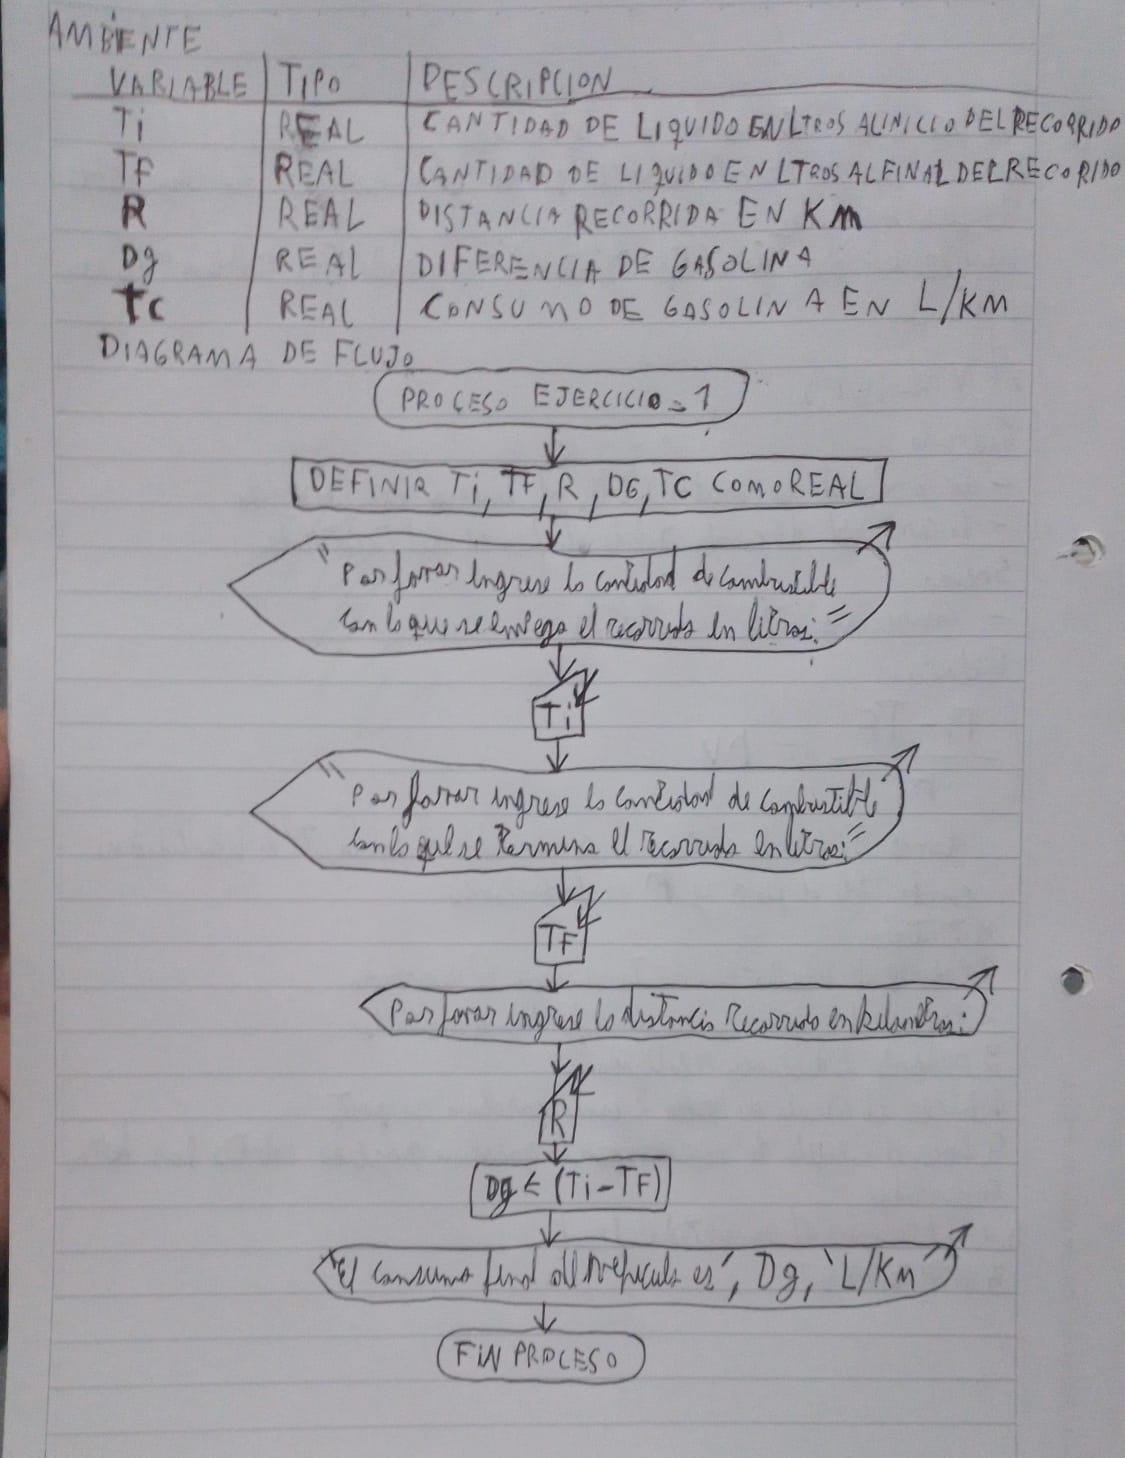 AMBIENTE
VARIABLE TIPO DESCRIPCION
Ti REAL CANTIDAD DE LIQUIDO EN LTROS AL INICIO DEL RECORRIDO
TF REAL CANTIDAD DE LIQUIDO EN LTROS AL FINAL DEL RECORIDO
R REAL DISTANCIA RECORRIDA EN Km
Dg REAL DIFERENCIA DE GASOLINA
TC REAL CONSUMO DE GASOLINA EN L/KM
DIAGRAMA DE FLUJO
PROCESO EJERCICIO_1
DEFINIR Ti, TF, R, DG, TC COMO REAL
"Por favor ingrese la cantidad de combustible
con la que se empego el recorrido en litros:"
Ti
"Por favor ingrese la cantidad de combustible
con la que se termina el recorrido en litros:"
TF
Por favor ingrese la distancia recorrida en kilometros:
R
Dg ← (Ti-TF)
"El consumo final del vehiculo es", Dg, "L/Km"
FIN PROCESO